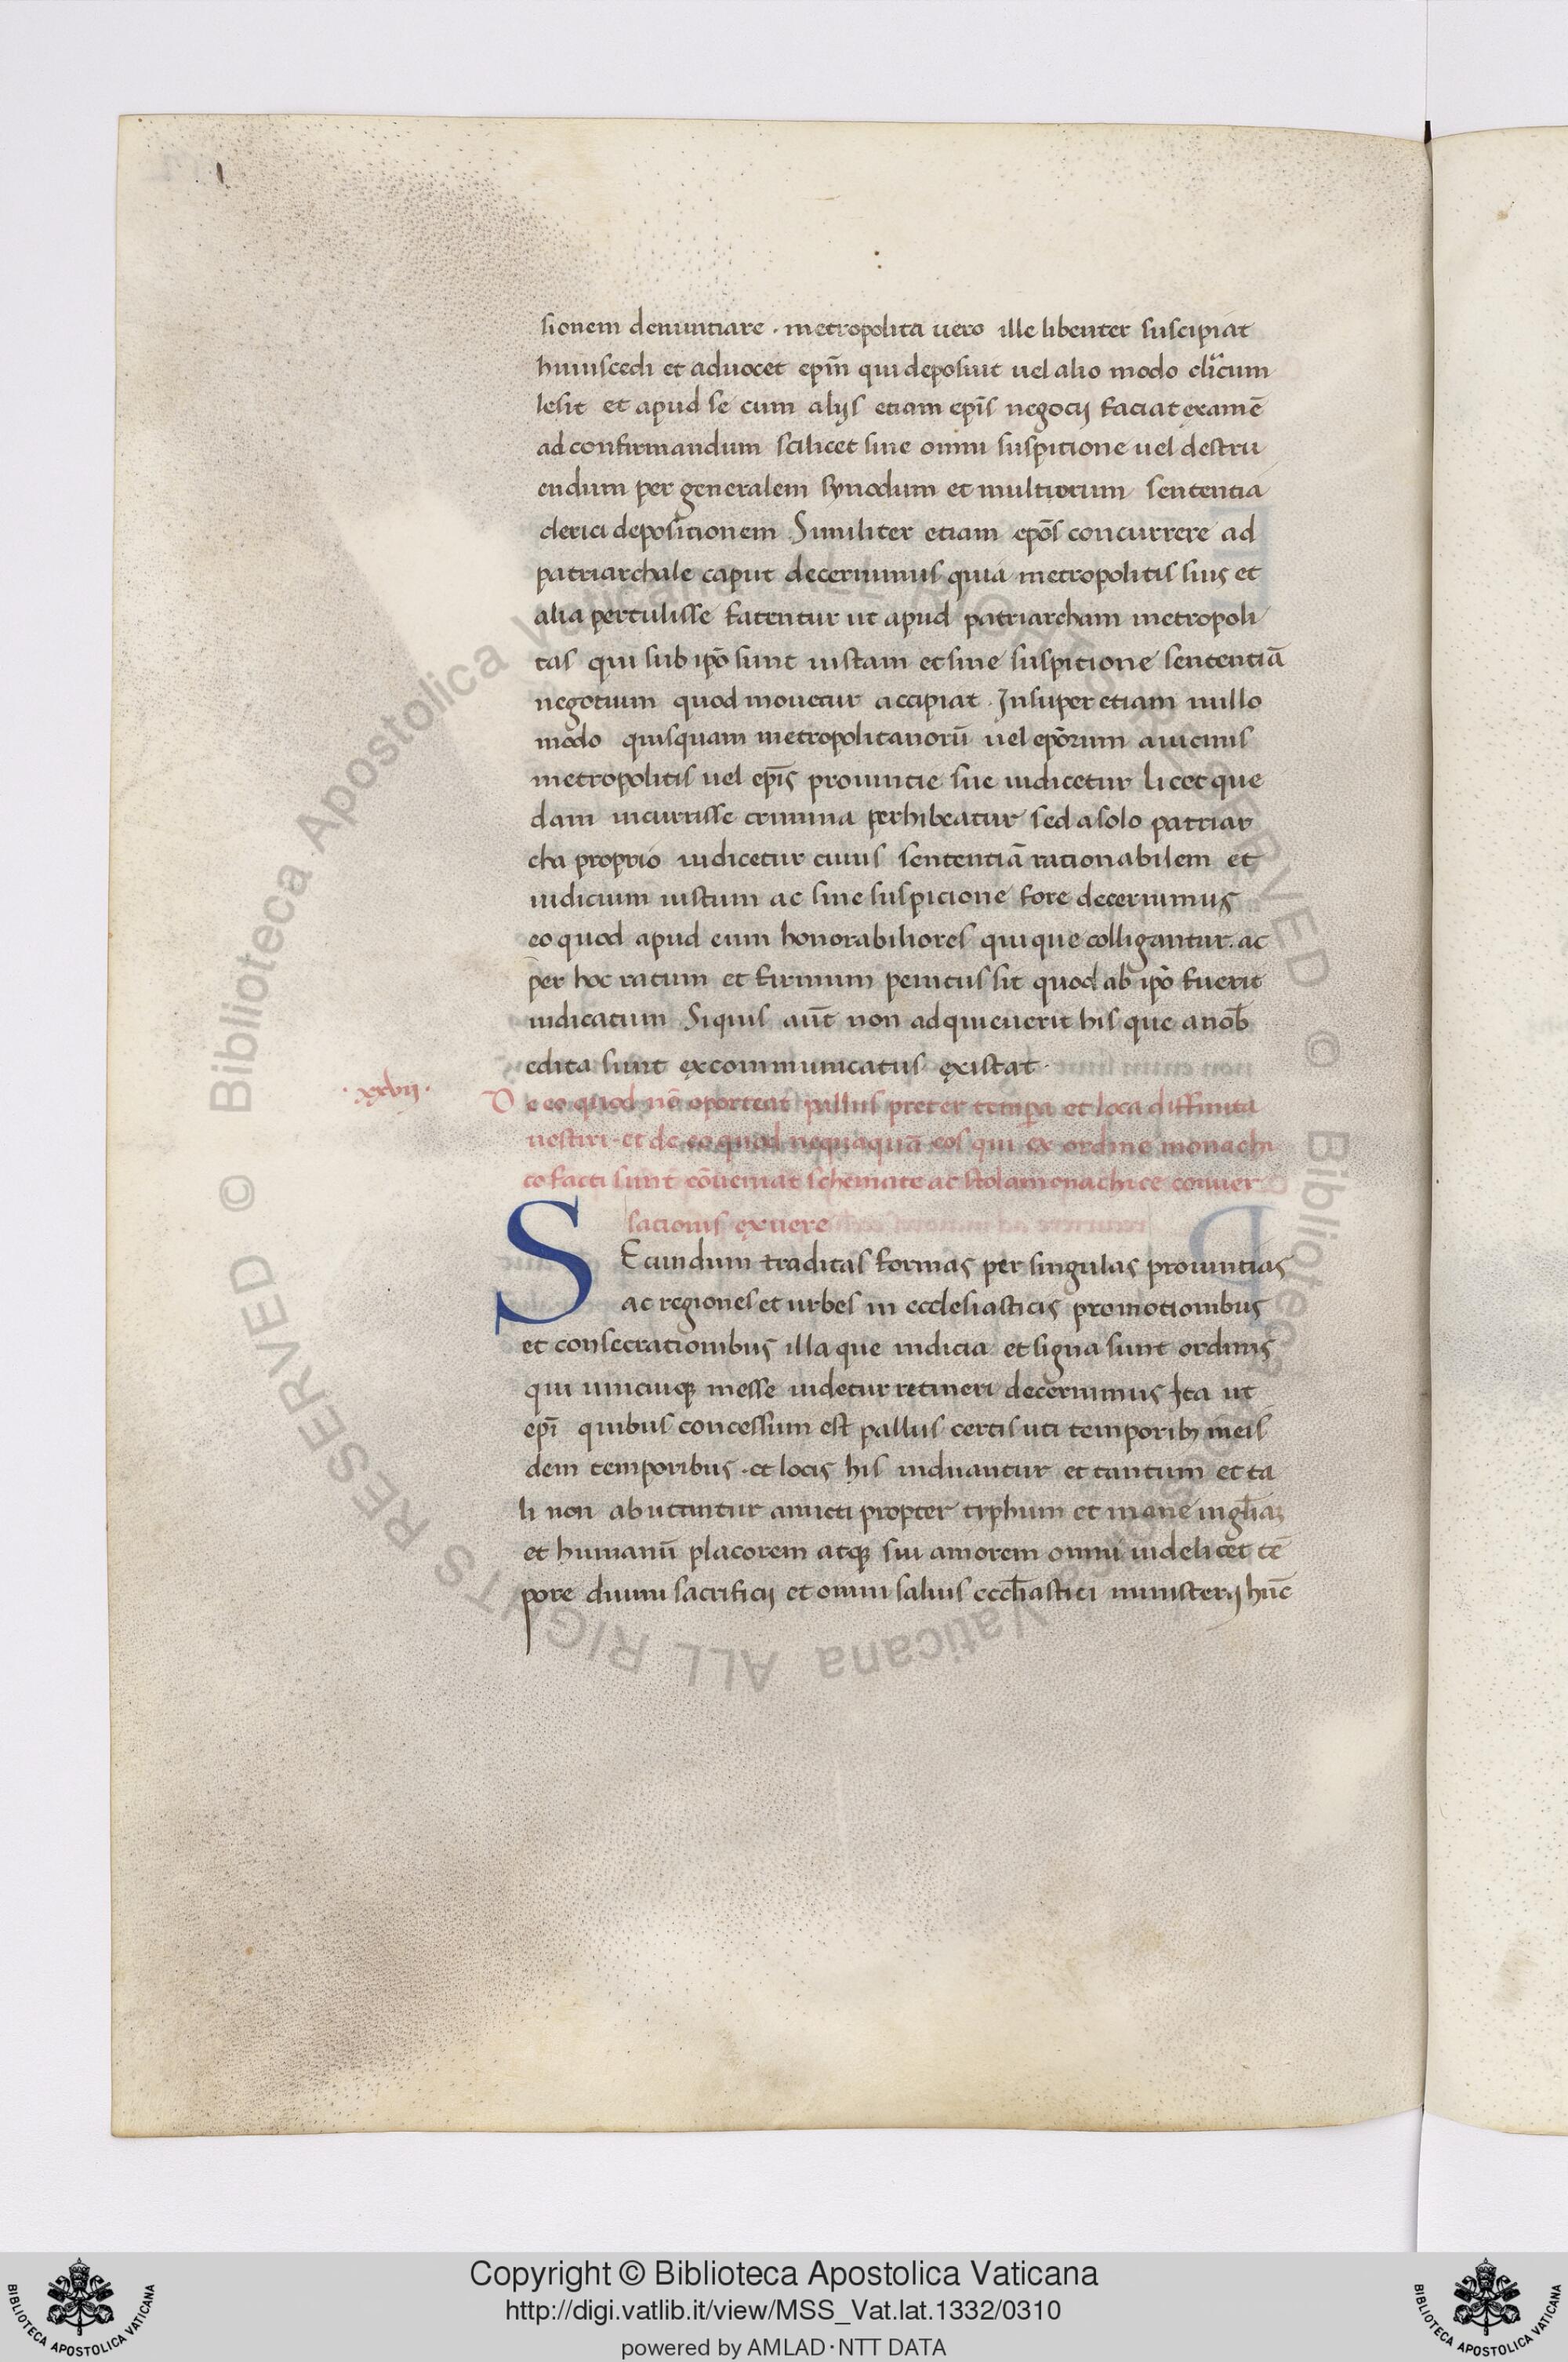 sionem denuntiare · metropolita uero ille libenter suscipiat
huiuscedi et aduocet ep̄m qui deposuit uel alio modo clīcum
lesit et apud se cum alijs etiam ep̄is negocij faciat examē
ad confirmandum scilicet sine omni suspitione uel destru
endum per generalem synodum et multiorum sententia
clerici depositionem Similiter etiam ep̄os concurrere ad
patriarchale caput decernimus quia metropolitis suis et
alia pertulisse fatentur ut apud patriarcham metropoli
tas qui sub ip̄o sunt iustam et sine suspitione sententiā
negotium quod mouetur accipiat · Insuper etiam nullo
modo quisquam metropolitanorū uel ep̄orum a uicinis
metropolitis uel ep̄is prouintie sue iudicetur licet que
dam incurrisse crimina perhibeatur sed a solo patriar
cha proprio iudicetur cuius sententiā rationabilem et
iudicium iustum ac sine suspicione fore decernimus
eo quod apud eum honorabiliores quique colligantur. ac
per hoc ratum et firmum penitus sit quod ab ip̄o fuerit
iudicatum Siquis aūt non adquieuerit his que a nob̄
edita sunt excommunicatus existat ·
· xxvij · De eo quod nō oporteat pallijs preter tempa et loca diffinita
uestiri · et de eo quod nequaquā eos qui ex ordine monachi
co facti sunt cōueniat schemate ac stola monachice conuer
sationis exuere
SEcundum traditas formas per singulas prouintias
ac regiones et urbes in ecclesiasticis promotionibus
et consecrationibus illa que indicia et signa sunt ordinis
qui unicuiqꝫ inesse uidetur retineri decernimus Ita ut
ep̄i quibus concessum est pallijs certis uti temporibꝫ in eis
dem temporibus · et locis his induantur et tantum et ta
li non abutantur amictu propter typhum et inane in gl̄iaꝫ
et humanū placorem atqꝫ sui amorem omni uidelicet tē
pore diuini sacrificij et omni saluis eccl̄iastici ministerij hūc
Copyright © Biblioteca Apostolica Vaticana
http://digi.vatlib.it/view/MSS_Vat.lat.1332/0310
powered by AMLAD·NTT DATA
BIBLIOTECA APOSTOLICA VATICANA
BIBLIOTECA APOSTOLICA VATICANA
© Biblioteca Apostolica Vaticana ALL RIGHTS RESERVED © Biblioteca Apostolica Vaticana ALL RIGHTS RESERVED